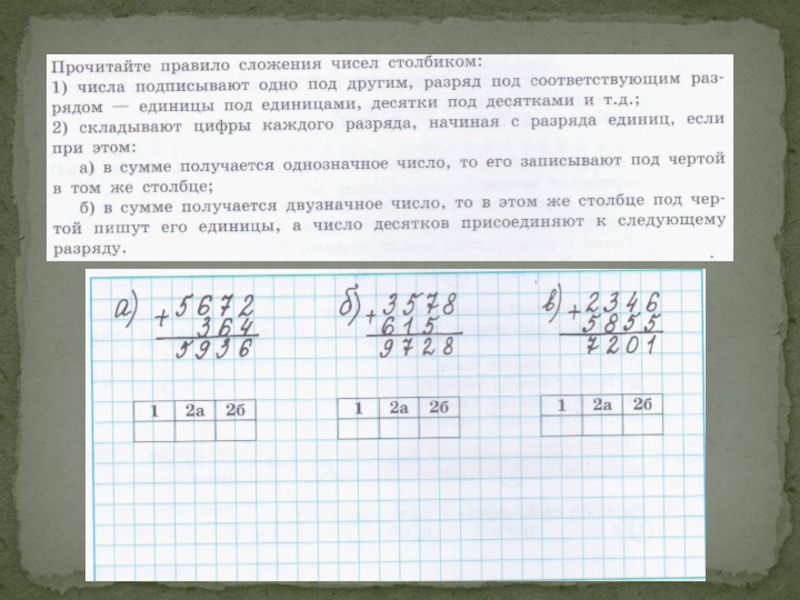 Прочитайте правило сложения чисел столбиком:
1) числа подписывают одно под другим, разряд под соответствующим раз-
рядом — единицы под единицами, десятки под десятками и т.д.;
2) складывают цифры каждого разряда, начиная с разряда единиц, если
при этом:
а) в сумме получается однозначное число, то его записывают под чертой
в том же столбце;
б) в сумме получается двузначное число, то в этом же столбце под чер-
той пишут его единицы, а число десятков присоединяют к следующему
разряду.
а) + 5672 б) + 3578 в) + 2346
364 615 5855
5936 9728 7201
1 2а 2б 1 2а 2б 1 2а 2б